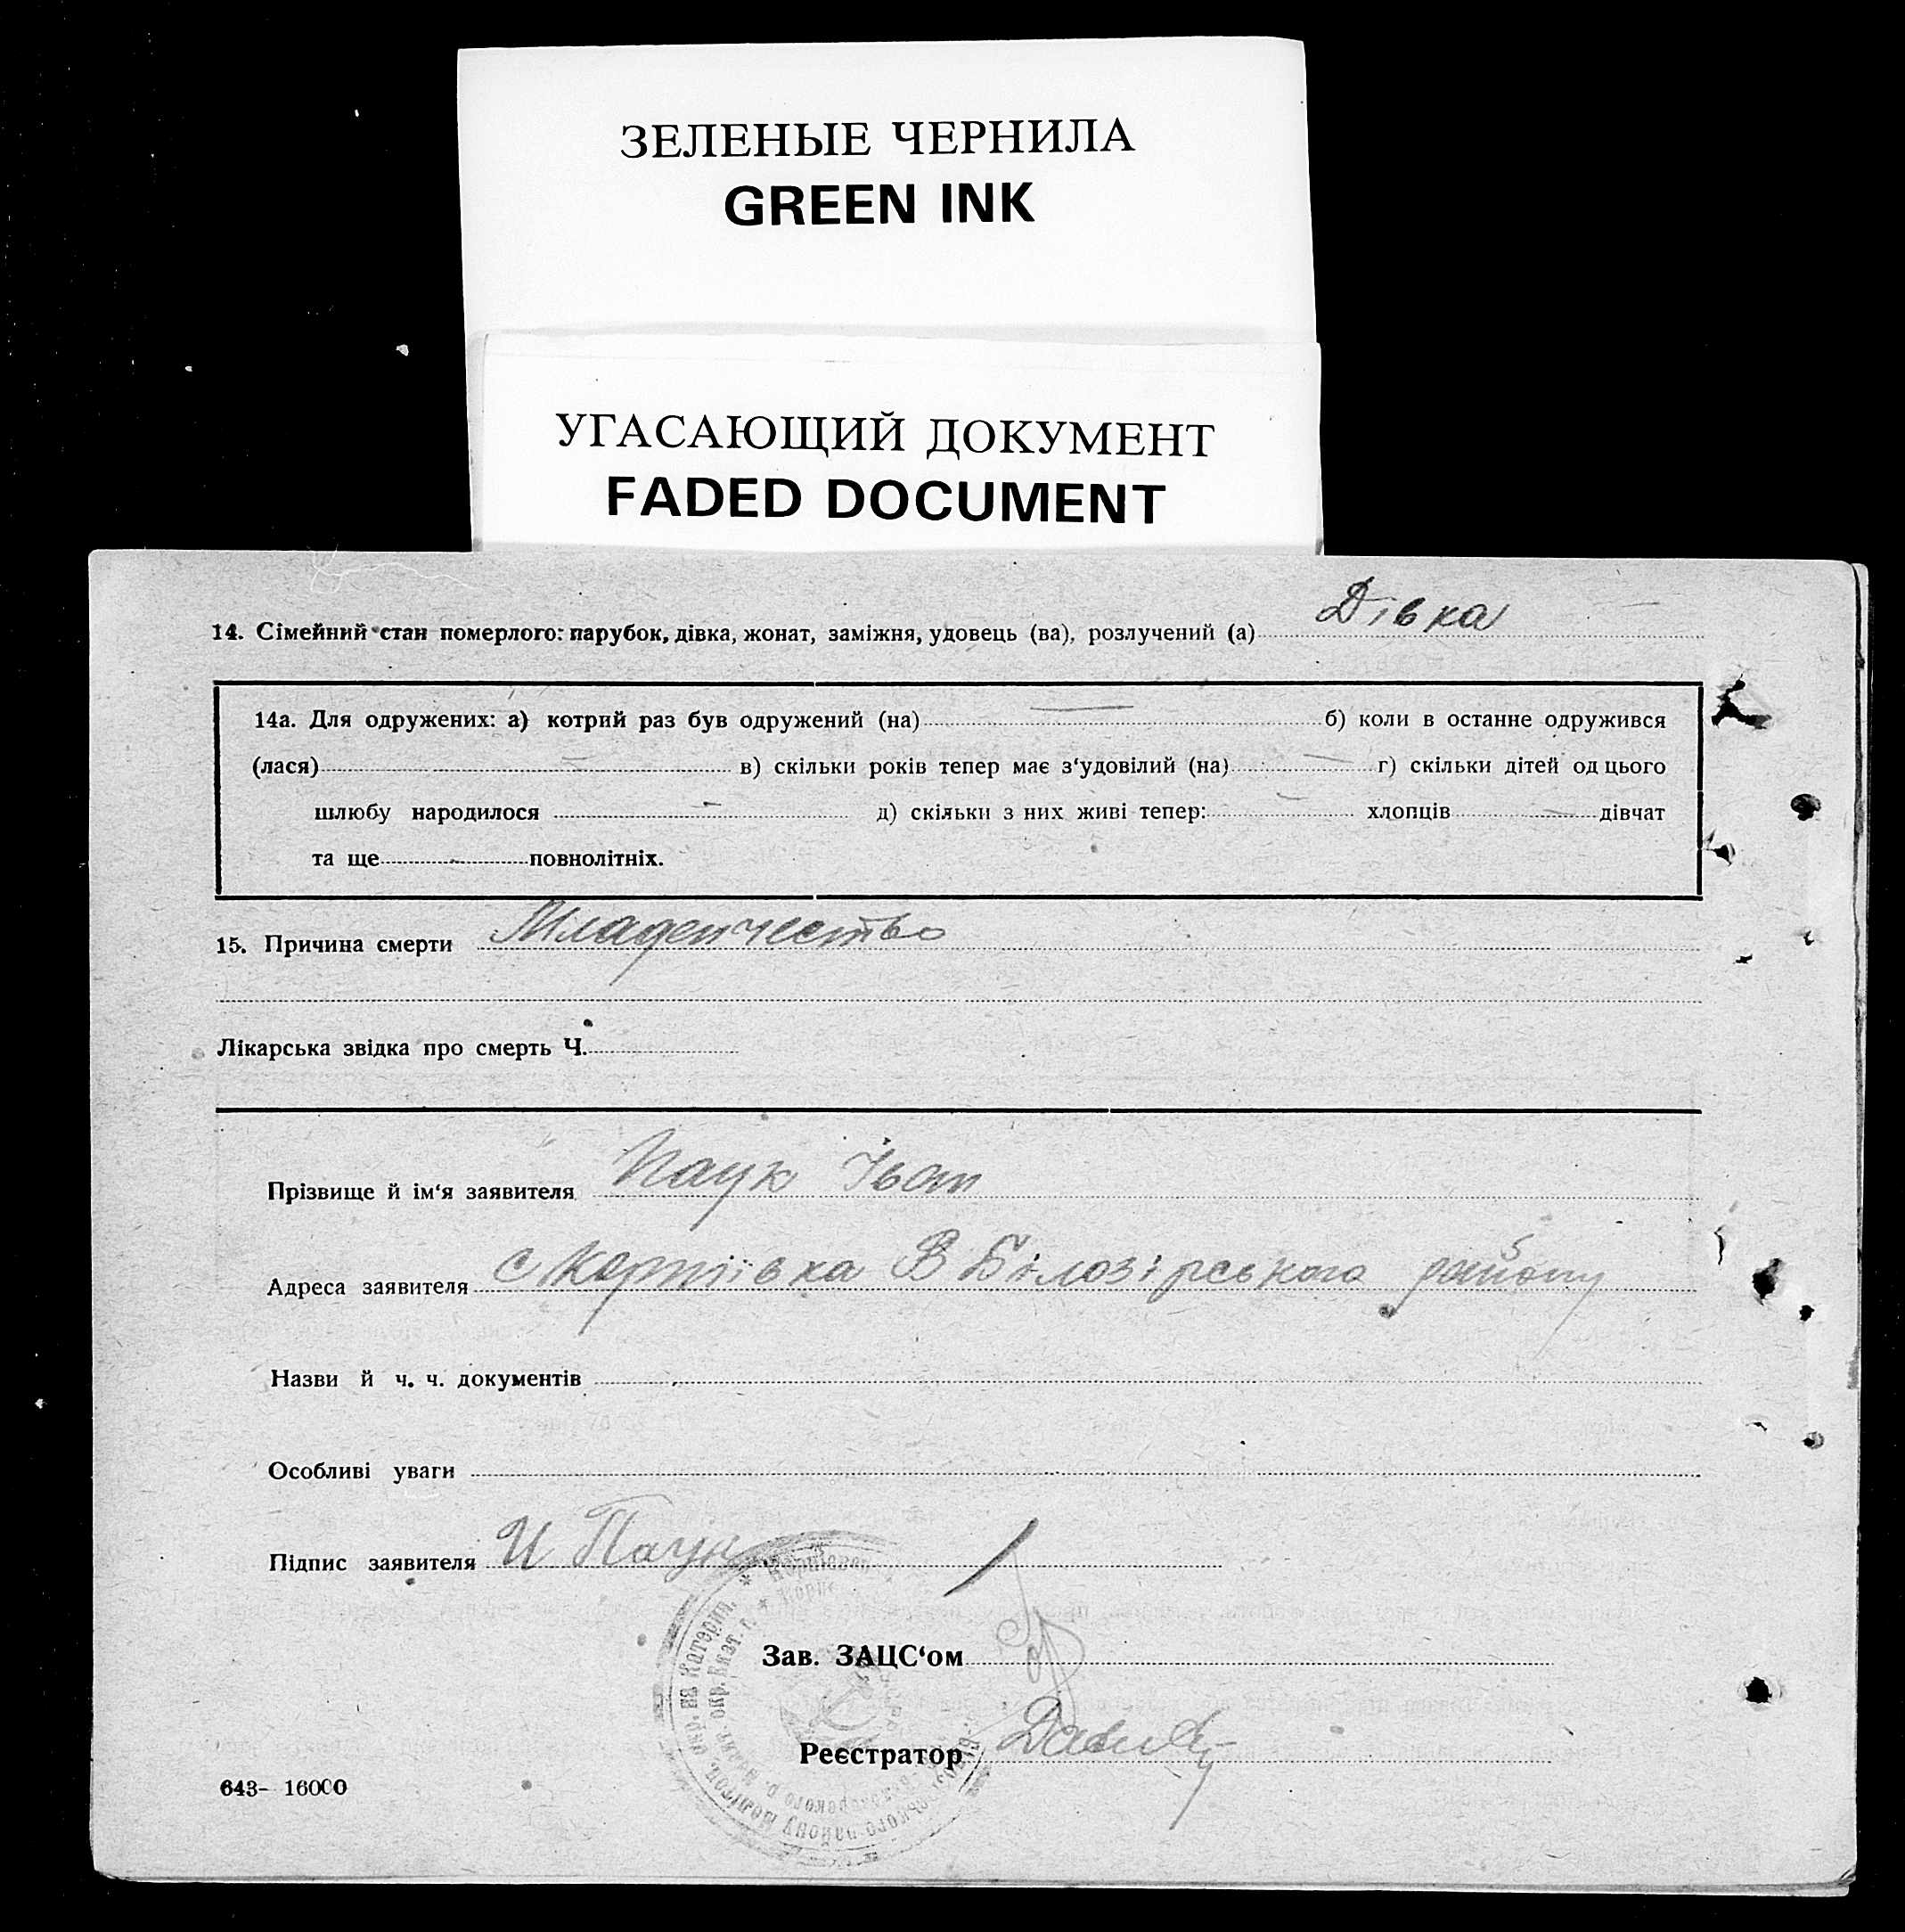 ЗЕЛЕНЫЕ ЧЕРНИЛА
GREEN INK
УГАСАЮЩИЙ ДОКУМЕНТ
FADED DOCUMENT
14. Сімейний стан померлого: парубок, дівка, жонат, заміжня, удовець (ва), розлучений (а) Дівка
14а. Для одружених: а) котрий раз був одружений (на) — б) коли в останне одружився
(лася) — в) скільки років тепер має з‘удовілий (на) — г) скільки дітей од цього
шлюбу народилося — д) скільки з них живі тепер: — хлопців — дівчат
та ще - повнолітніх.
15. Причина смерти Младенчество
Лікарська звідка про смерть Ч.
Прізвище й ім‘я заявителя Паук Іван
Адреса заявителя с В Білозірського району
Назви й ч. ч. документів
Особливі уваги
Підпис заявителя И Паук
Зав. ЗАЦС‘ом
Реєстратор
643- 16000